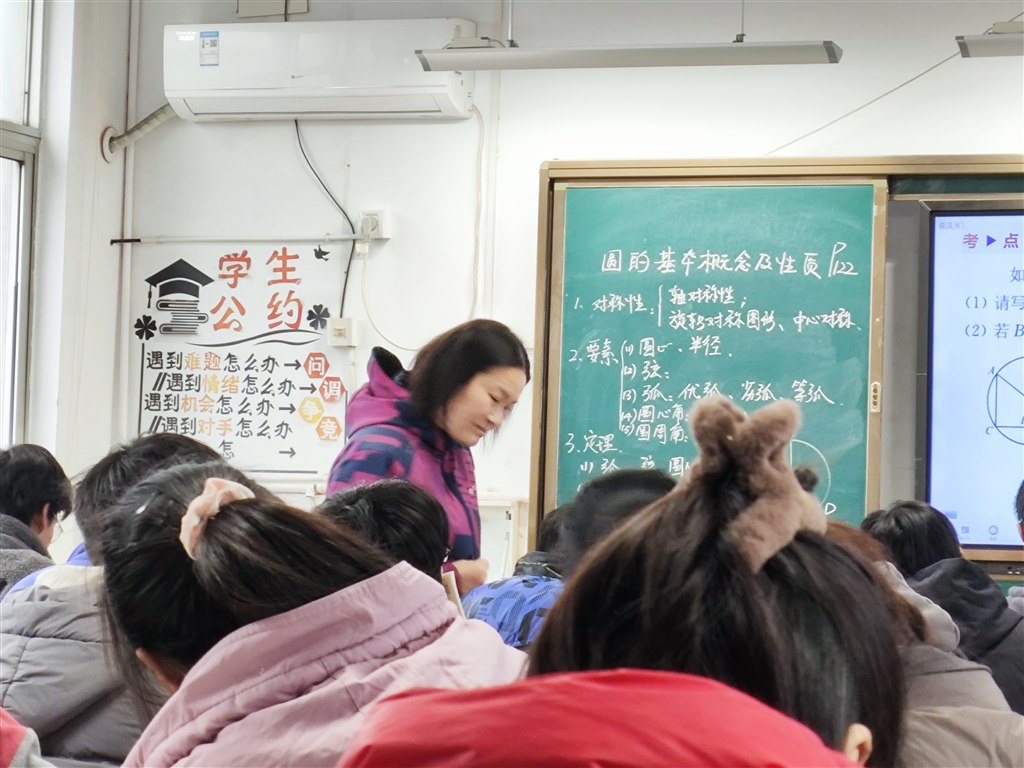 学生
公约
遇到难题怎么办→问
遇到情绪怎么办→调
遇到机会怎么办→争
遇到对手怎么办→竞
怎 →
圆的基本概念及性质 P122
1. 对称性: 轴对称性;
旋转对称图形、中心对称.
2. 要素 (1) 圆心、半径.
(2) 弦:
(3) 弧: 优弧、劣弧、等弧
(4) 圆心角
(5) 圆周角
3. 定理
(1) 弧、弦、圆
考▶点
如
(1) 请写
(2) 若B
A
C